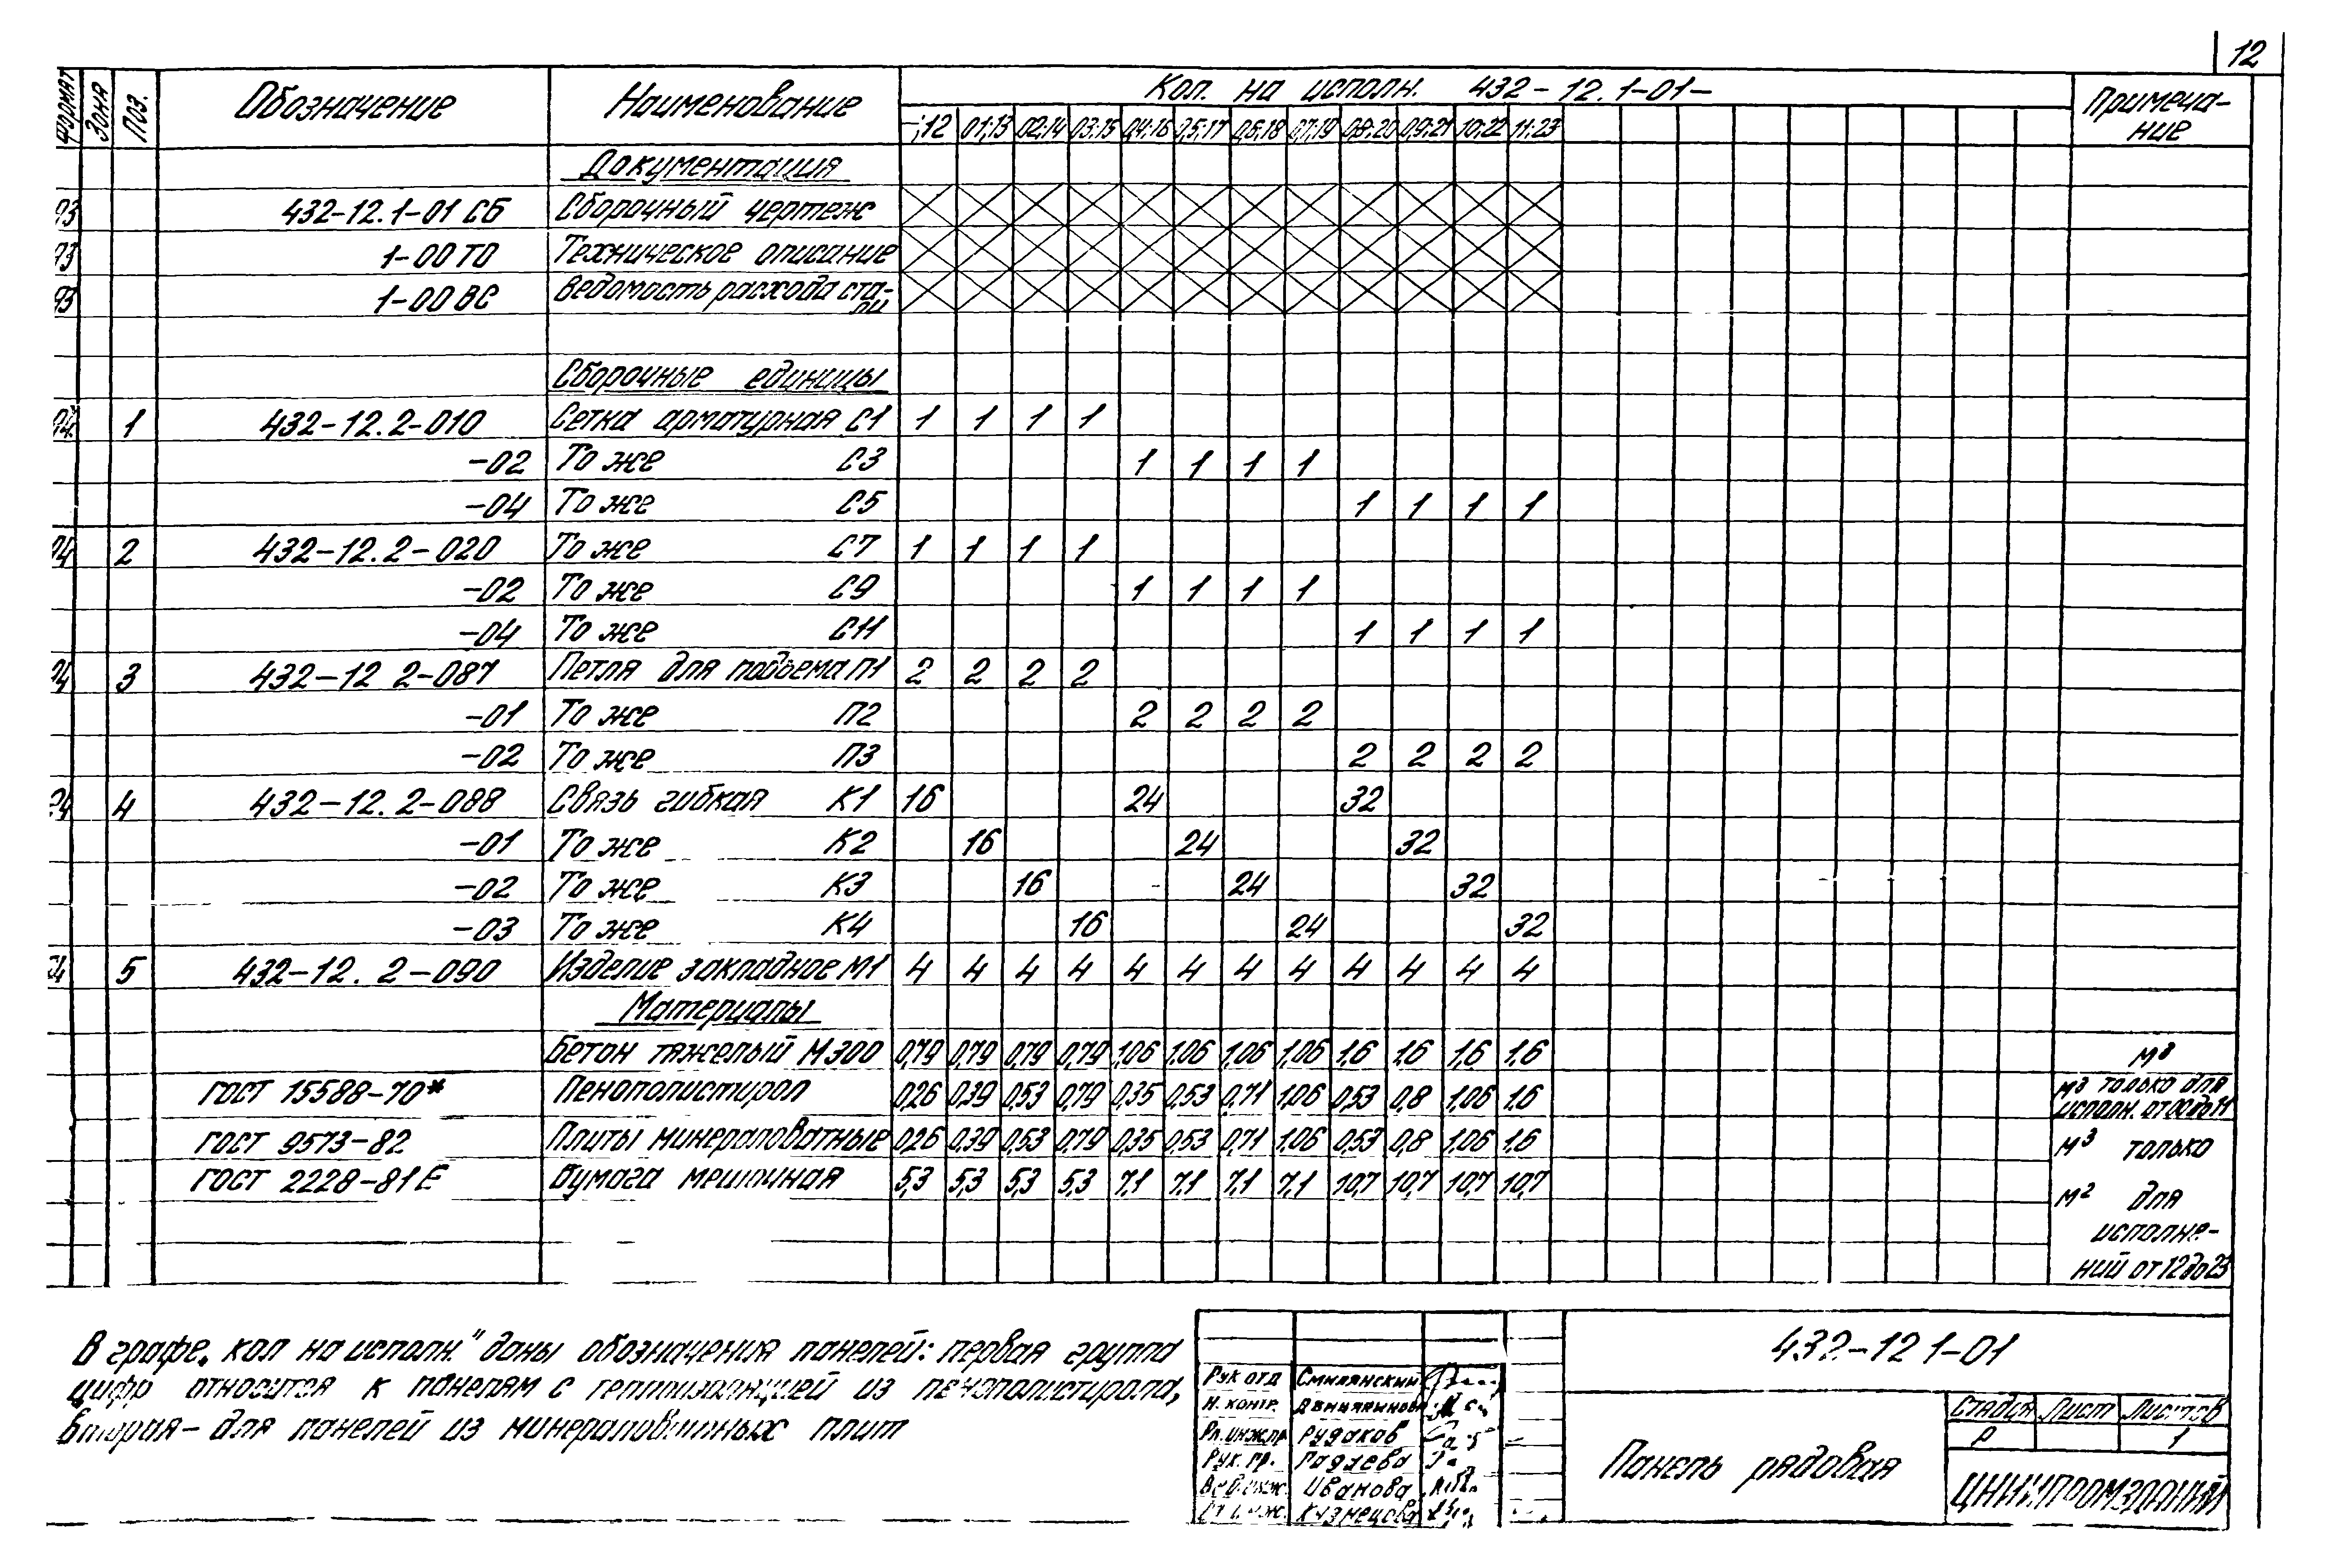 12
Формат Зона Поз. Обозначение Наименование Кол. на исполн. 432-12.1-01- Примеча-
ние
-;12 01;13 02;14 03;15 04;16 05;17 06;18 07;19 08;20 09;21 10;22 11;23
Документация
432-12.1-01 СБ Сборочный чертеж
1-00 ТО Техническое описание
1-00 ВС Ведомость расхода ста-
ли
Сборочные единицы
1 432-12.2-010 Сетка арматурная С1 1 1 1 1
-02 То же С3 1 1 1 1
-04 То же С5 1 1 1 1
2 432-12.2-020 То же С7 1 1 1 1
-02 То же С9 1 1 1 1
-04 То же С11 1 1 1 1
3 432-12 2-087 Петля для подъема П1 2 2 2 2
-01 То же П2 2 2 2 2
-02 То же П3 2 2 2 2
4 432-12.2-088 Связь гибкая К1 16 24 32
-01 То же К2 16 24 32
-02 То же К3 16 24 32
-03 То же К4 16 24 32
5 432-12.2-090 Изделие закладное М1 4 4 4 4 4 4 4 4 4 4 4 4
Материалы
Бетон тяжелый М300 0,79 0,79 0,79 0,79 1,06 1,06 1,06 1,06 1,6 1,6 1,6 1,6 м³
ГОСТ 15588-70* Пенополистирол 0,26 0,39 0,53 0,79 0,35 0,53 0,71 1,06 0,53 0,8 1,06 1,6 м³ только для
исполн. от 00 до 11
ГОСТ 9573-82 Плиты минераловатные 0,26 0,39 0,53 0,79 0,35 0,53 0,71 1,06 0,53 0,8 1,06 1,6 м³ только
ГОСТ 2228-81Е Бумага мешочная 5,3 5,3 5,3 5,3 7,1 7,1 7,1 7,1 10,7 10,7 10,7 10,7 м² для
исполне-
ний от 12 до 23
В графе „кол на исполн." даны обозначения панелей: первая группа
цифр относится к панелям с теплоизоляцией из пенополистирола,
вторая - для панелей из минераловатных плит
432-12 1-01
Рук отд Смилянский
Н. контр.
Гл.инж.пр Рудаков
Рук. гр. Гадаева
Вед.инж. Иванова
Ст.инж. Кузнецова
Панель рядовая
Стадия Лист Листов
Р 1
ЦНИИПРОМЗДАНИЙ